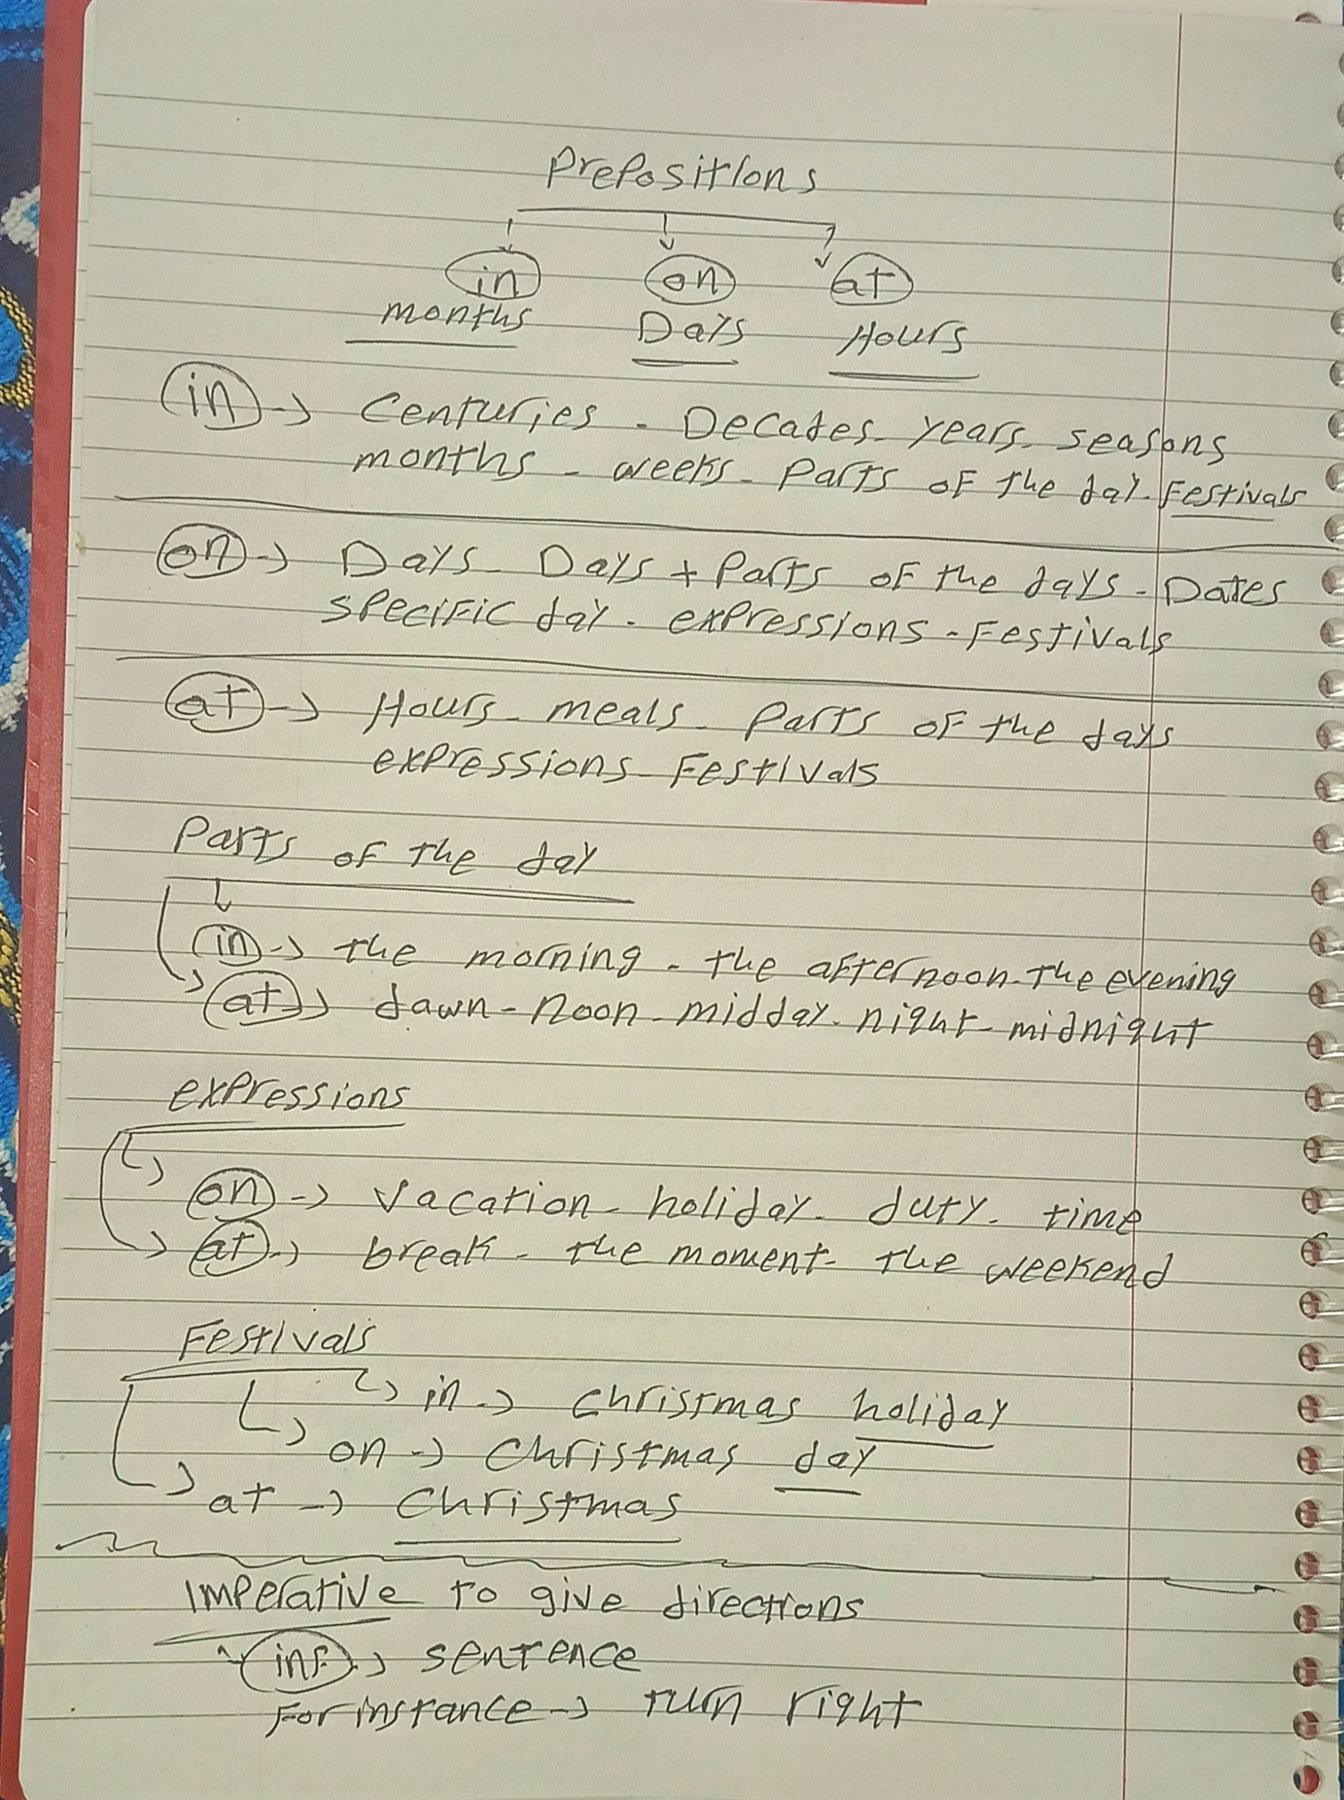 Prepositions
in on at
months Days Hours
in → Centuries - Decades - years - seasons
months - weeks - parts of the day - Festivals
on → Days - Days + Parts of the days - Dates
specific day - expressions - Festivals
at → Hours - meals - parts of the days
expressions - Festivals
Parts of the day
in → the morning - the afternoon - The evening
at → dawn - noon - midday - night - midnight
expressions
on → vacation - holiday - duty - time
at → break - the moment - the weekend
Festivals
in → christmas holiday
on → christmas day
at → christmas
Imperative to give directions
inf → sentence
For instance → turn right